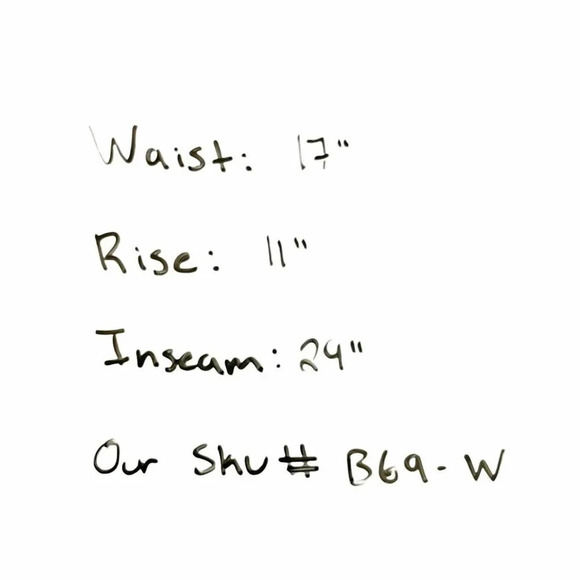 Waist: 17"
Rise: 11"
Inseam: 29"
Our Sku # B69-W